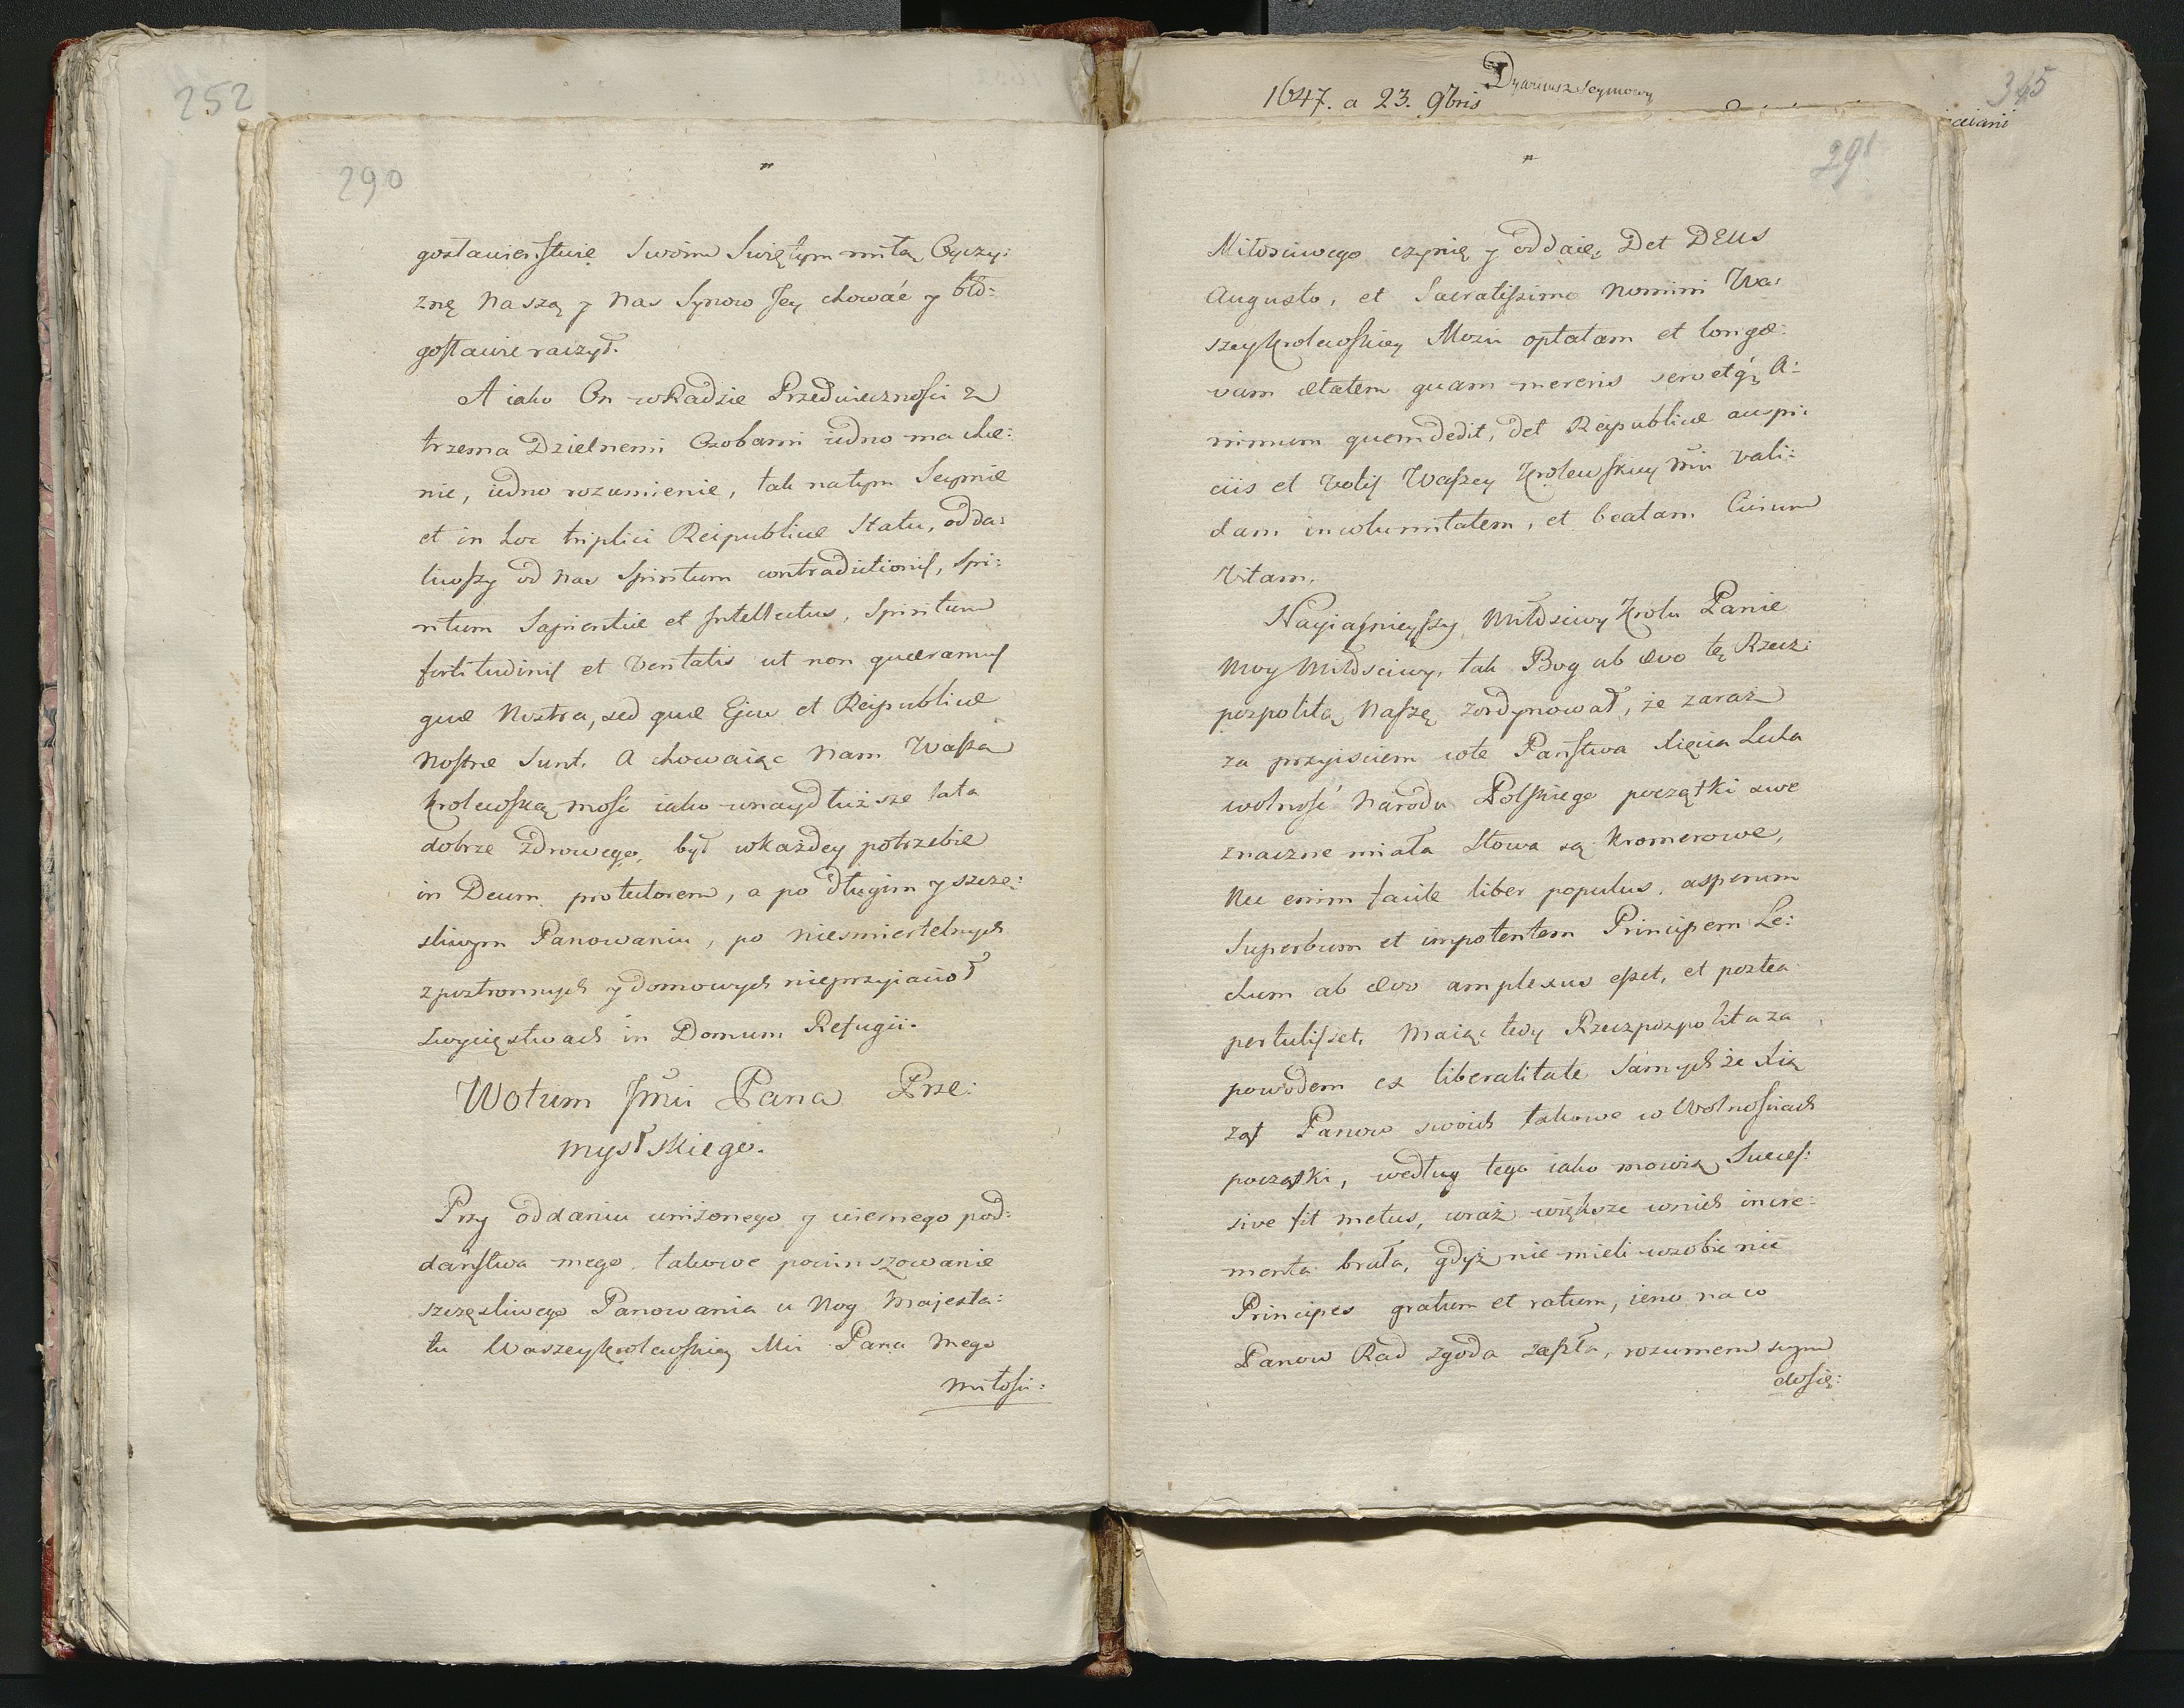 252
290
gosławieństwie Swoim Swiętym miłą Oyczy:
znę naszą y nas Synow Jey chować y bło:
gosławie raczył.
A iako On w Radzie Przedwieczności z
trzema Dzielnemi Osobami iedno ma chce:
nie, iedno rozumienie, tak na tym Seymie
et in hoc triplici Reipublicæ Statu, odda:
liwszy od nas Spiritum contradictionis, Spi:
ritum Sapientiæ et Intellectus, Spiritum
fortitudinis et Veritatis ut non quæramus
quæ Nostra, sed quæ Ejus et Reipublicæ
Nostræ Sunt. A chowaiąc nam Waszą
Krolewską mość iako w naydłuższe lata
dobrze zdrowego, był w każdey potrzebie
in Deum protectorem, a po długim y szczę:
sliwym Panowaniu, po niesmiertelnych
z postronnych y domowych nieprzyiacioł
zwycięstwach in Domum Refugii.
Wotum Jmci Pana Prze:
mysłskiego.
Przy oddaniu uniżonego y wiernego pod:
daństwa mego, takowe powinszowanie
szczęsliwego Panowania u Nog Majesta:
tu Waszey Krolewskiey Mci Pana Mego
Miłości:
1647. a 23. 9bris
Dyariusz Seymowy
345
291
Miłosciwego czynię y oddaię. Det DEUS
Augusto, et Sacratissimo Nomini Wa:
szey Krolewskiey Mości optatam et longæ:
vam ætatem quam mereris servetq, A:
nimum quem dedit, det Reipublicæ auspi:
ciis et Votis Waszey Krolewskiey Mci vali:
dam incolumitatem, et beatam Civium
Vitam.
Nayiasnieyszy Miłosciwy Krolu Panie
moy Miłosciwy, tak Bog ab ævo tę Rzecz
pospolitą Naszę zordynował, że zaraz
za przyisciem w te Państwa Xięcia Lecha
wolność Narodu Polskiego początki swe
znaczne miała Słowa są Kromerowe,
Nec enim facile liber populus, asperum
Superbum et impotentem Principem Le:
chum ab ævo amplexus esset, et postea
pertulisset. Maiąc tedy Rzeczpospolita za
powodem ex liberalitate Samychże Xią
żąt Panow swoich takowe w Wolnościach
początki, według tego iako mowią, Succes:
sive fit metus, coraz większe w nich incre:
menta brała, gdyż nie mieli w sobie nic
Principes gratum et ratum, ieno na co
Panow Rad zgoda zaszła, rozumem swym